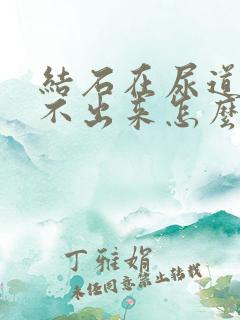 結石在尿道
不出來怎麼
丁雅娟
未经同意禁止转载